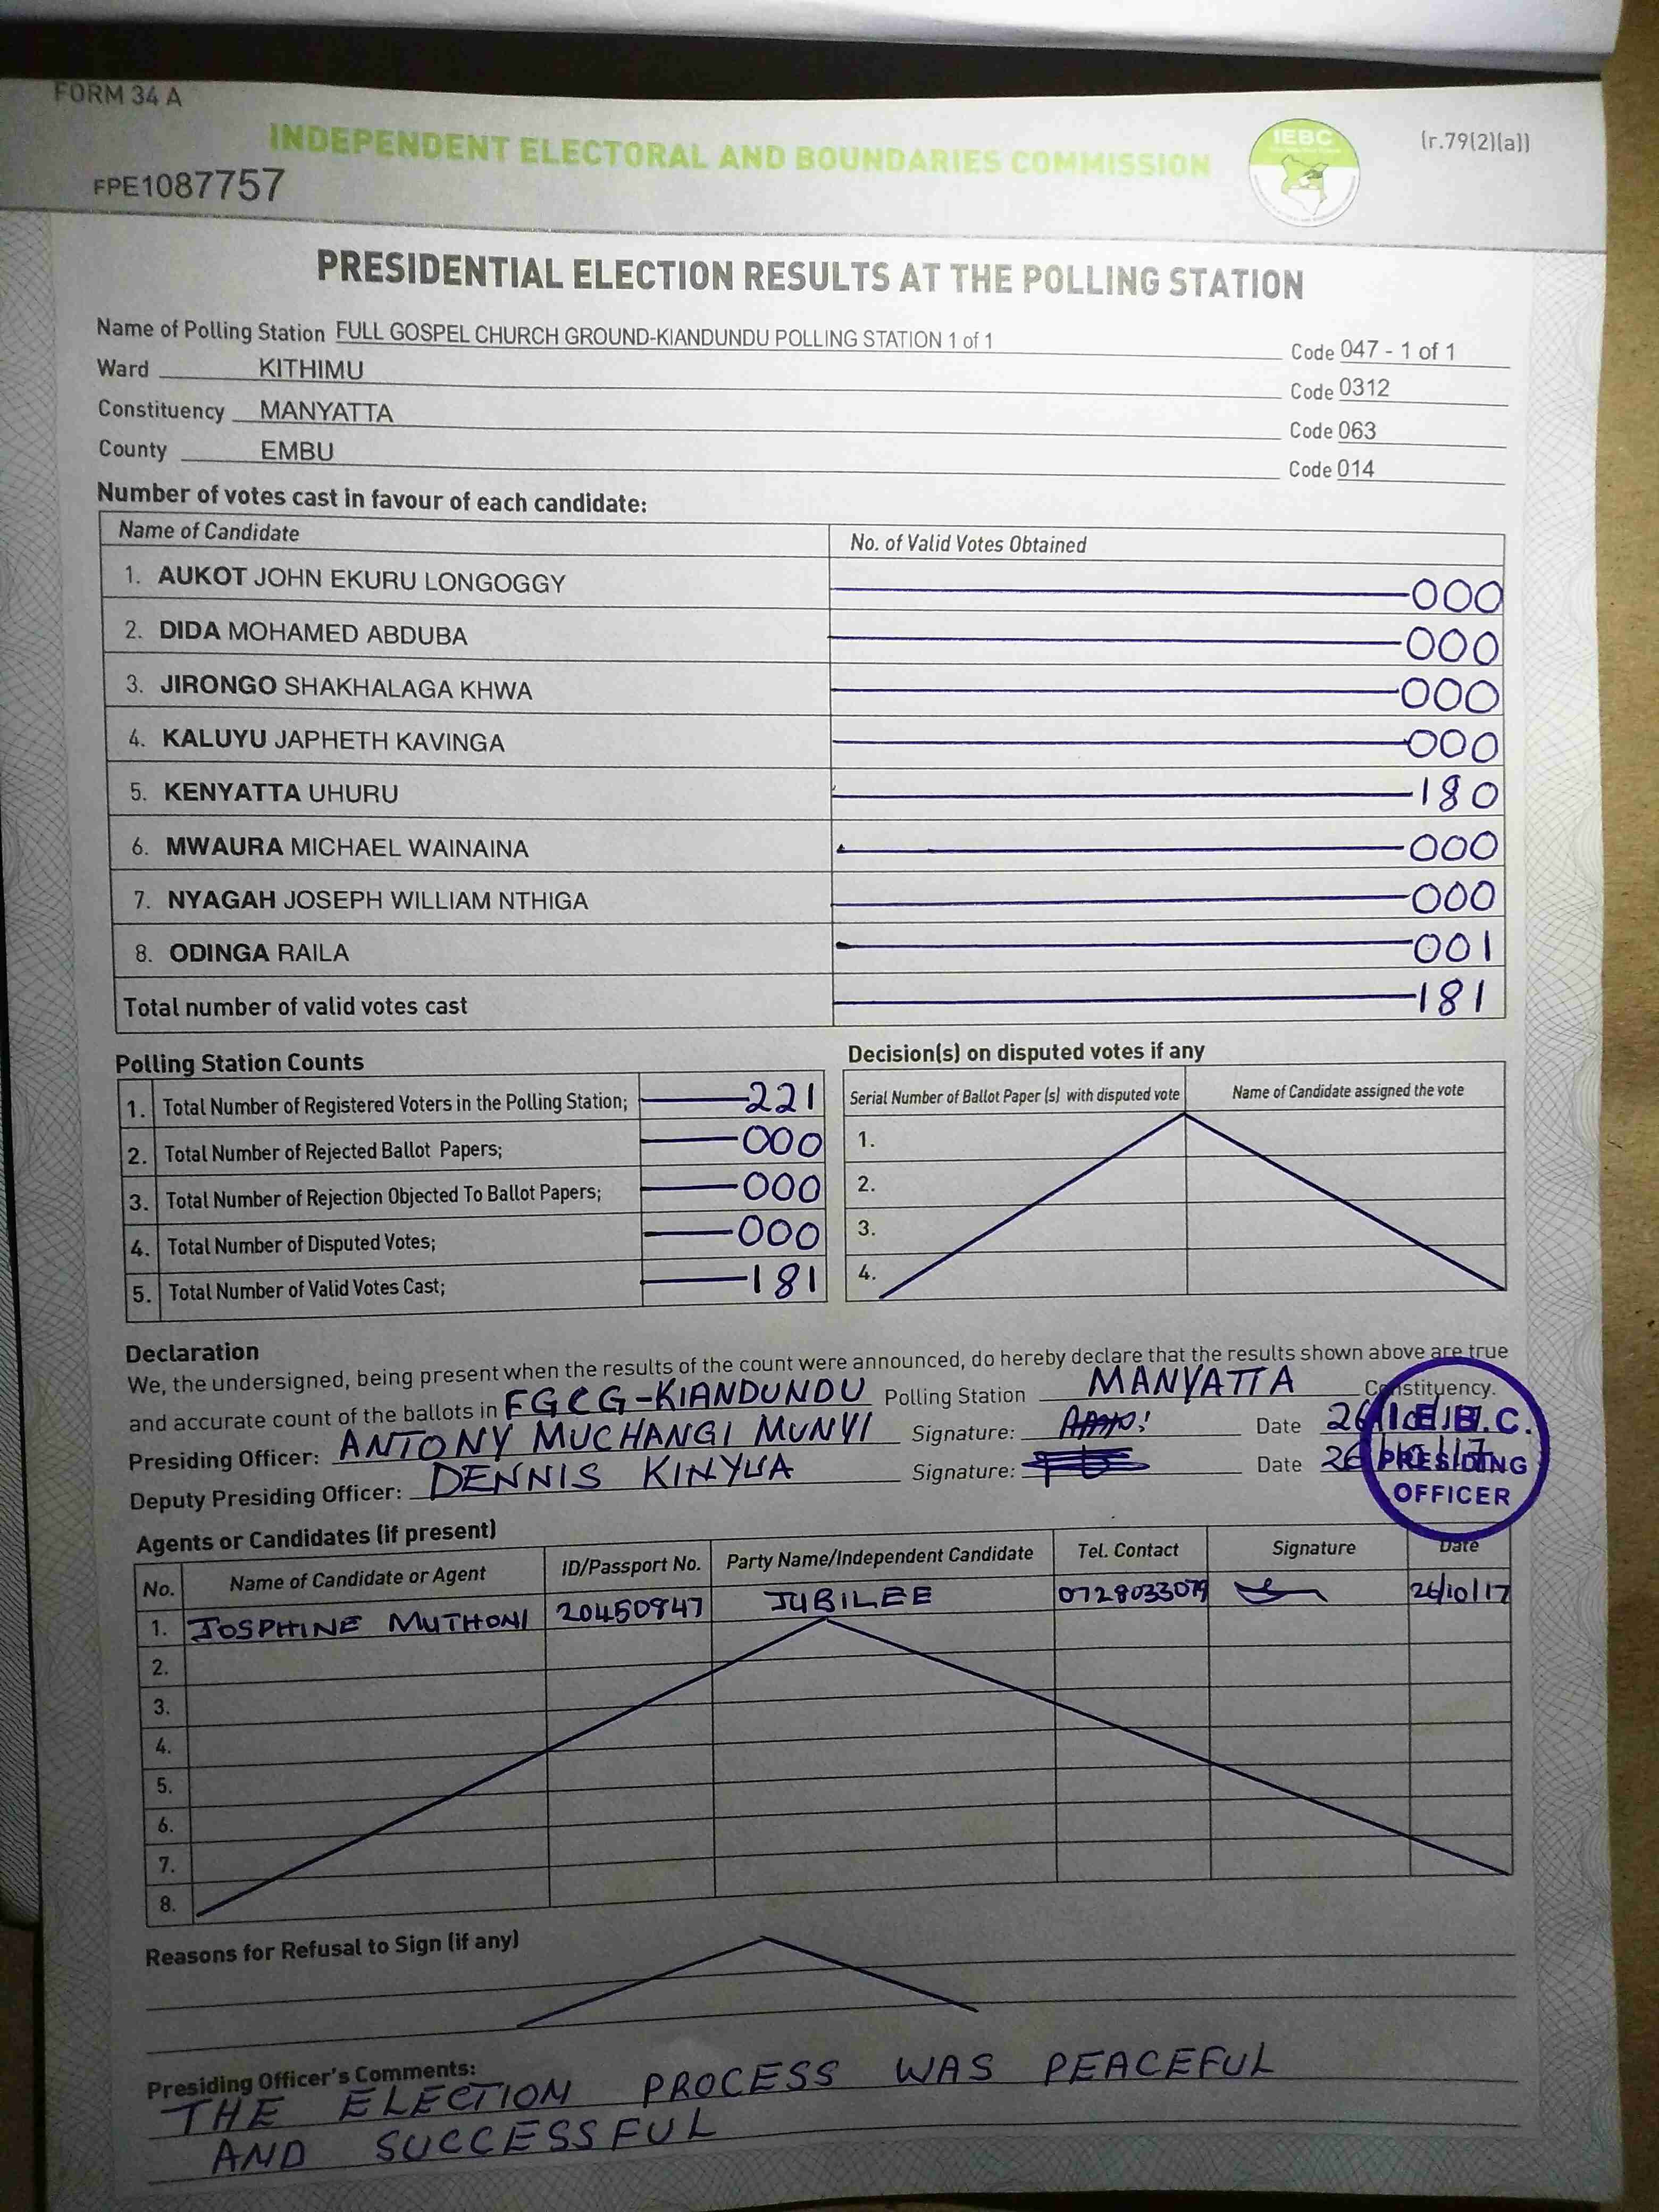 FORM 34 A
INDEPENDENT ELECTORAL AND BOUNDARIES COMMISSION
IEBC
(r.79(2)(a))
FPE1087757
PRESIDENTIAL ELECTION RESULTS AT THE POLLING STATION
Name of Polling Station FULL GOSPEL CHURCH GROUND-KIANDUNDU POLLING STATION 1 of 1 Code 047 - 1 of 1
Ward KITHIMU Code 0312
Constituency MANYATTA Code 063
County EMBU Code 014
Number of votes cast in favour of each candidate:
Name of Candidate No. of Valid Votes Obtained
1. AUKOT JOHN EKURU LONGOGGY 000
2. DIDA MOHAMED ABDUBA 000
3. JIRONGO SHAKHALAGA KHWA 000
4. KALUYU JAPHETH KAVINGA 000
5. KENYATTA UHURU 180
6. MWAURA MICHAEL WAINAINA 000
7. NYAGAH JOSEPH WILLIAM NTHIGA 000
8. ODINGA RAILA 001
Total number of valid votes cast 181
Polling Station Counts
1. Total Number of Registered Voters in the Polling Station; 221
2. Total Number of Rejected Ballot Papers; 000
3. Total Number of Rejection Objected To Ballot Papers; 000
4. Total Number of Disputed Votes; 000
5. Total Number of Valid Votes Cast; 181
Decision(s) on disputed votes if any
Serial Number of Ballot Paper (s) with disputed vote Name of Candidate assigned the vote
1.
2.
3.
4.
Declaration
We, the undersigned, being present when the results of the count were announced, do hereby declare that the results shown above are true
and accurate count of the ballots in FGCG-KIANDUNDU Polling Station MANYATTA Constituency.
Presiding Officer: ANTONY MUCHANGI MUNYI Signature: Date 26/10/17
Deputy Presiding Officer: DENNIS KINYUA Signature: Date 26/10/17
I.E.B.C.
PRESIDING
OFFICER
Agents or Candidates (if present)
No. Name of Candidate or Agent ID/Passport No. Party Name/Independent Candidate Tel. Contact Signature Date
1. JOSPHINE MUTHONI 20450847 JUBILEE 0728033079 26/10/17
2.
3.
4.
5.
6.
7.
8.
Reasons for Refusal to Sign (if any)
Presiding Officer's Comments:
THE ELECTION PROCESS WAS PEACEFUL
AND SUCCESSFUL